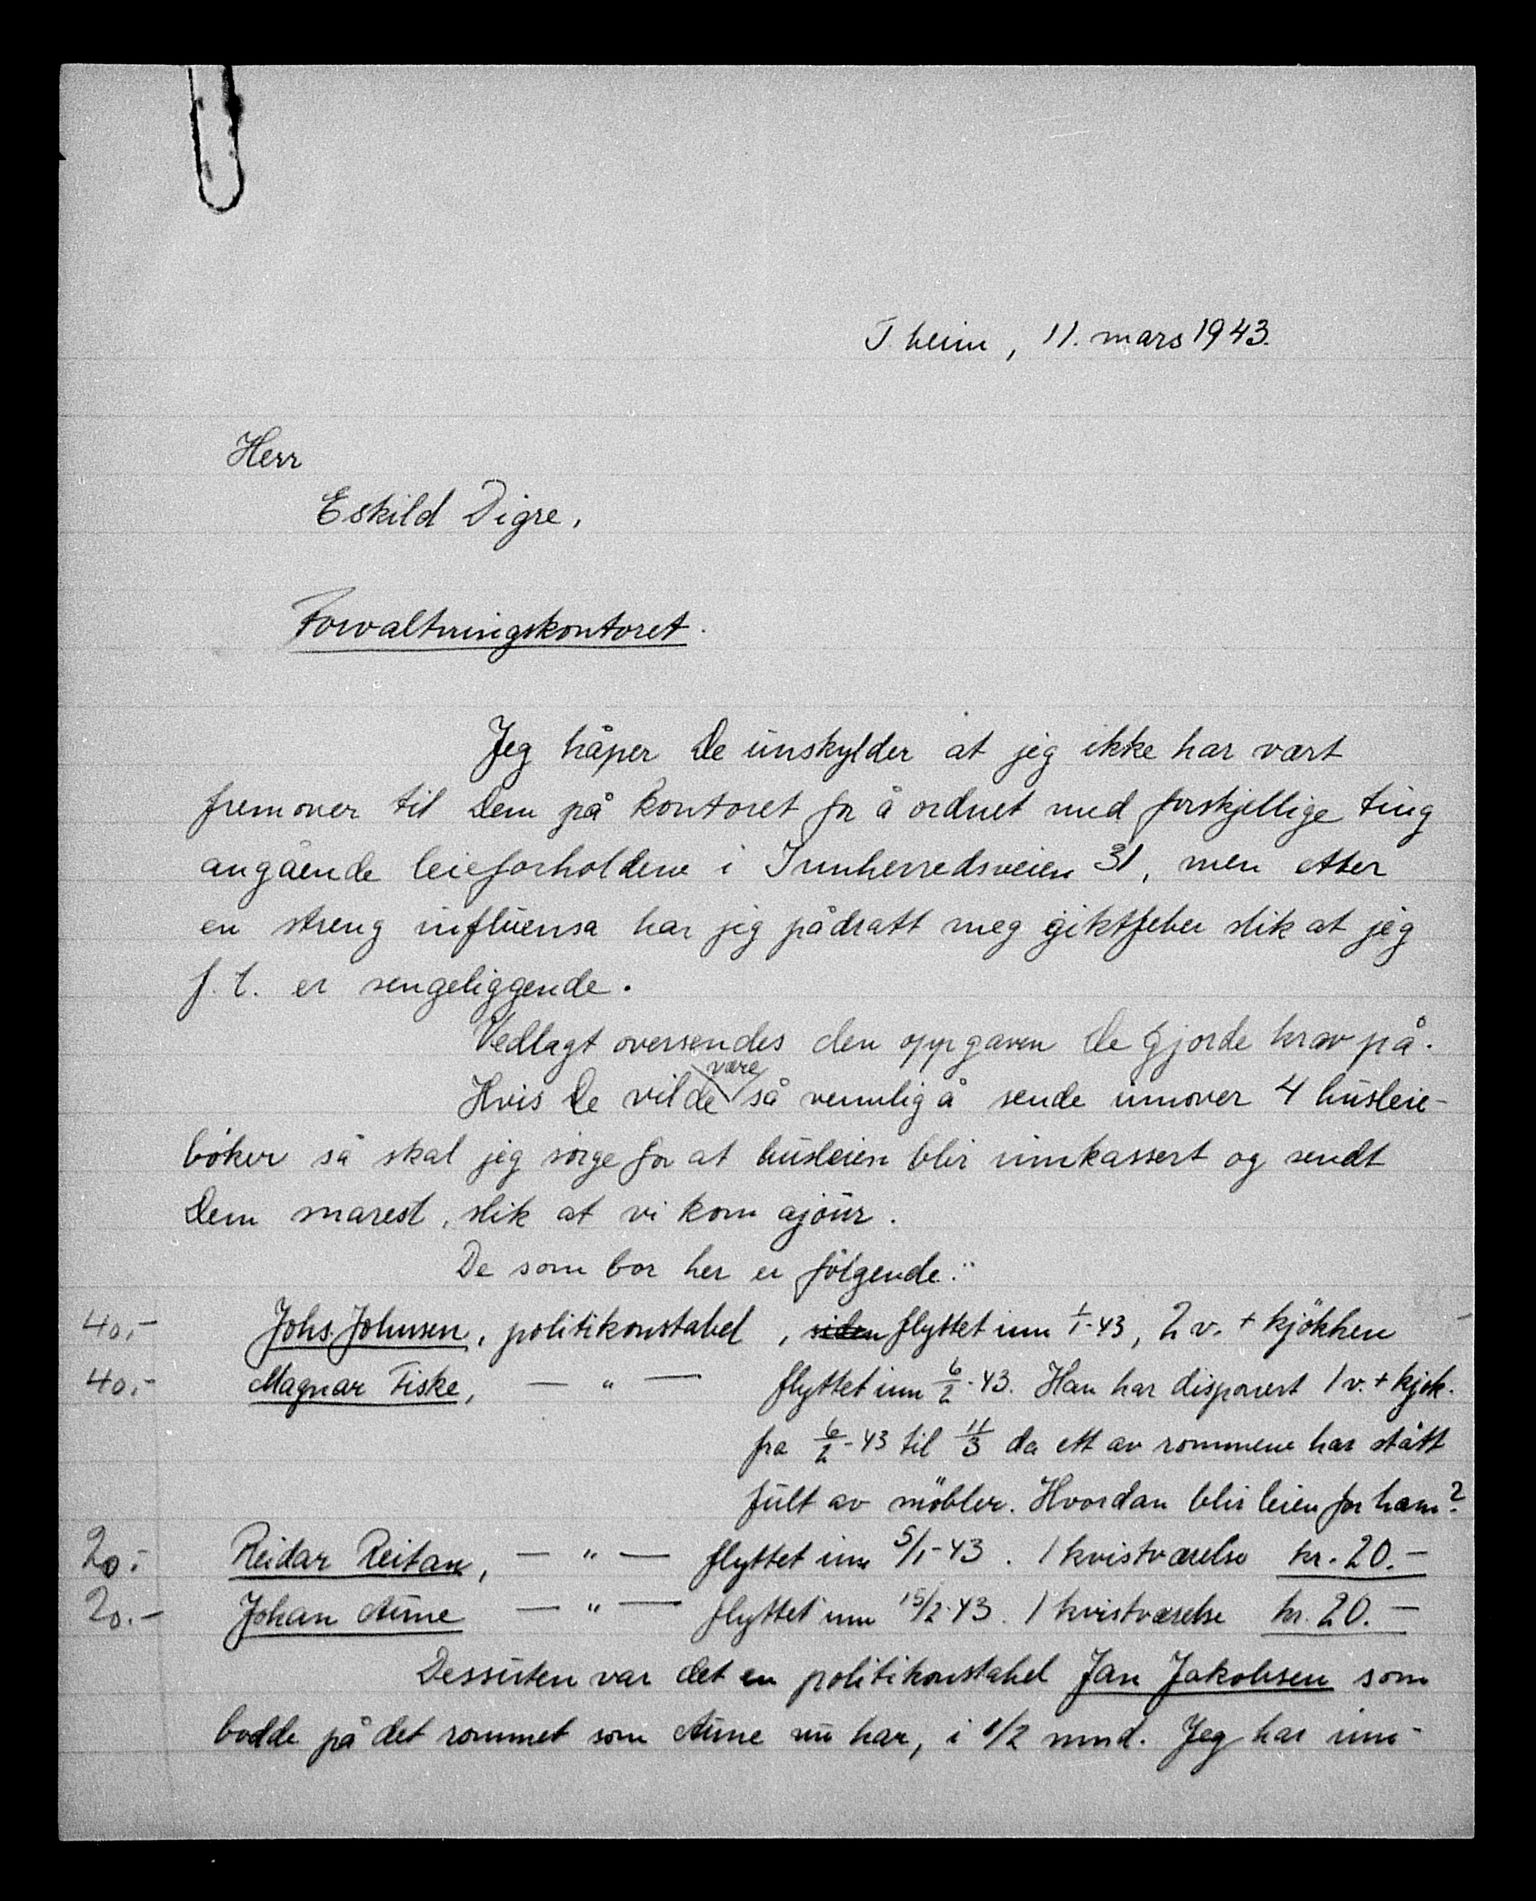 T.heim, 11. mars 1943.
Herr
Eskild Digre,
Forvaltningskontoret.
Jeg håper De unskylder at jeg ikke har vært
fremover til Dem på kontoret for å ordnet med forskjellige ting
angående leieforholdene i Innherredsveien 31, men etter
en streng influensa har jeg pådratt meg giktfeber slik at jeg
f.t. er sengeliggende.
Vedlagt oversendes den oppgaven De gjorde krav på.
Hvis De vilde være så vennlig å sende innover 4 husleie-
bøker så skal jeg sørge for at husleien blir innkassert og sendt
Dem snarest, slik at vi kom ajour.
De som bor her er følgende:
40,- Johs. Johnsen, politikonstabel, siden flyttet inn 1/1-43, 2 v. + kjökken
40,- Magnar Fiske, — " — flyttet inn 6/2-43. Han har disponert 1 v. + kjök.
fra 6/2-43 til 11/3 da ett av rommene har stått
fult av möbler. Hvordan blir leien for ham?
20,- Reidar Reitan, — " — flyttet inn 5/1-43. 1 kvistværelse kr. 20.-
20.- Johan Aune — " — flyttet inn 15/2-43. 1 kvistværelse kr. 20.-
Dessuten var det en politikonstabel Jan Jakobsen som
bodde på det rommet som Aune nu har, i 1/2 mnd. Jeg har inn-